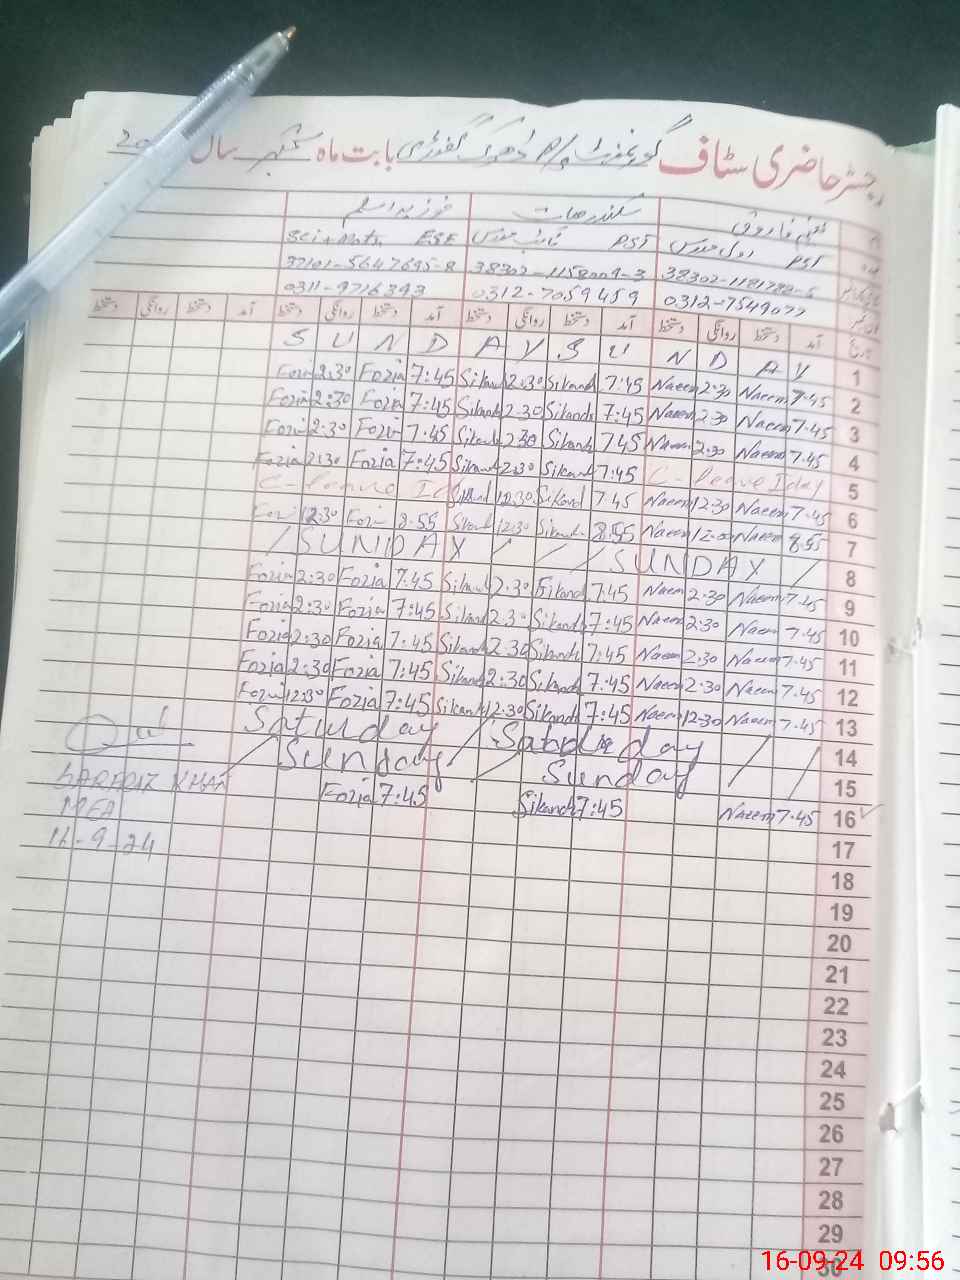 رجسٹر حاضری سٹاف گورنمنٹ بابت ماہ ستمبر سال 20
نعیم فاروق سکندر حیات فوزیہ اسلم
PST PST ESE Sci+Math
38302-1158009-3 37101-5647695-8
0312-7549077 0312-7059459 0311-9716393
آمد دستخط روانگی دستخط آمد دستخط روانگی دستخط آمد دستخط روانگی دستخط آمد دستخط روانگی دستخط
1 S U N D A Y S U N D A Y
2 Fozia 2:30 Fozia 7:45 Sikand 2:30 Sikand 7:45 Naeem 2:30 Naeem 7:45
3 Fozia 2:30 Fozia 7:45 Sikand 2:30 Sikand 7:45 Naeem 2:30 Naeem 7:45
4 Fozia 2:30 Fozia 7:45 Sikand 2:30 Sikand 7:45 Naeem 2:30 Naeem 7:45
5 Fozia 2:30 Fozia 7:45 Sikand 2:30 Sikand 7:45 C-leave 1 day
6 C-leave Sikand 12:30 Sikand 7:45 Naeem 12:30 Naeem 7:45
7 Fozia 12:30 Fozia 8:55 Sikand 12:30 Sikand 8:55 Naeem Naeem 8:55
8 / SUNDAY / / / SUNDAY /
9 Fozia 2:30 Fozia 7:45 Sikand 2:30 Sikand 7:45 Naeem 2:30 Naeem 7:45
10 Fozia 2:30 Fozia 7:45 Sikand 2:30 Sikand 7:45 Naeem 2:30 Naeem 7:45
11 Fozia 2:30 Fozia 7:45 Sikand 2:30 Sikand 7:45 Naeem 2:30 Naeem 7:45
12 Fozia 2:30 Fozia 7:45 Sikand 2:30 Sikand 7:45 Naeem 2:30 Naeem 7:45
13 Fozia 12:30 Fozia 7:45 Sikand 12:30 Sikand 7:45 Naeem 12:30 Naeem 7:45
14 Saturday / Saturday / /
15 / Sunday / Sunday / /
16 Fozia 7:45 Sikand 7:45 Naeem 7:45
SARFRAZ KHAN
MEA
16-9-24
17
18
19
20
21
22
23
24
25
26
27
28
29
30
16-09-24 09:56